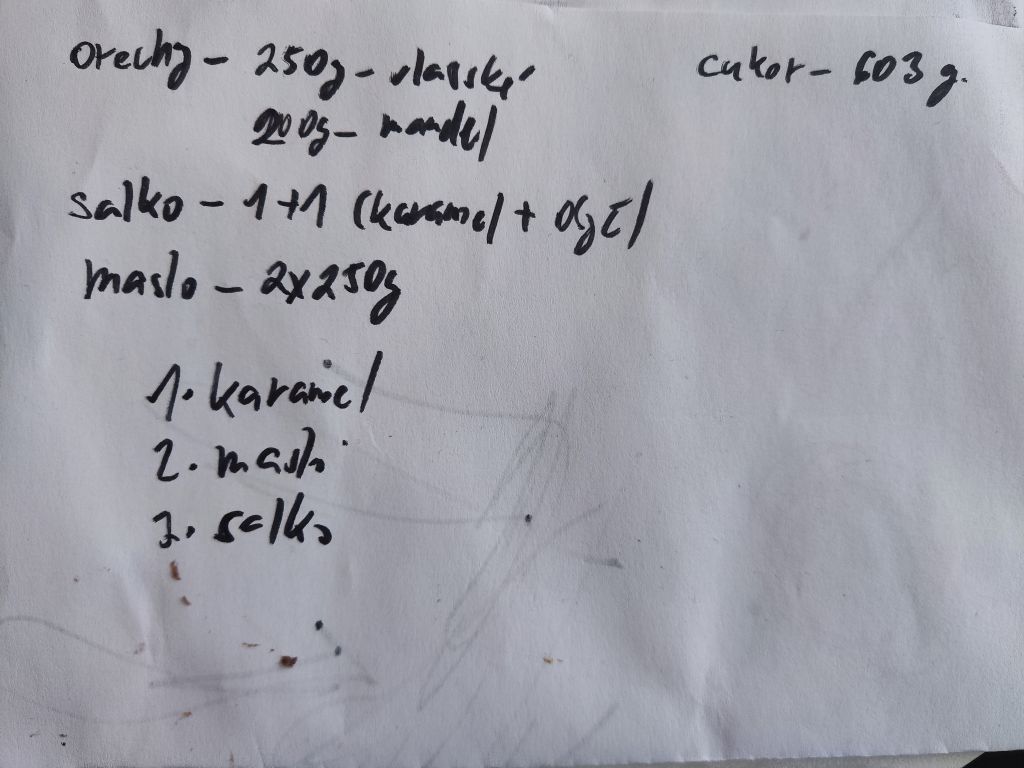 orechy - 250g - vlasské
cukor - 603 g.
200g - mandel
salko - 1+1 (karamel +
maslo - 2x250g
1. karamel
2. maslo
3. salko